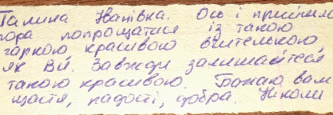 Галина Іванівна. Ось і прийшла
пора попрощатися із такою
гарною красивою вчителькою
як Ви. Завжди залишайтеся
такою красивою. Бажаю вам
щастя, радості, добра. Ніколи